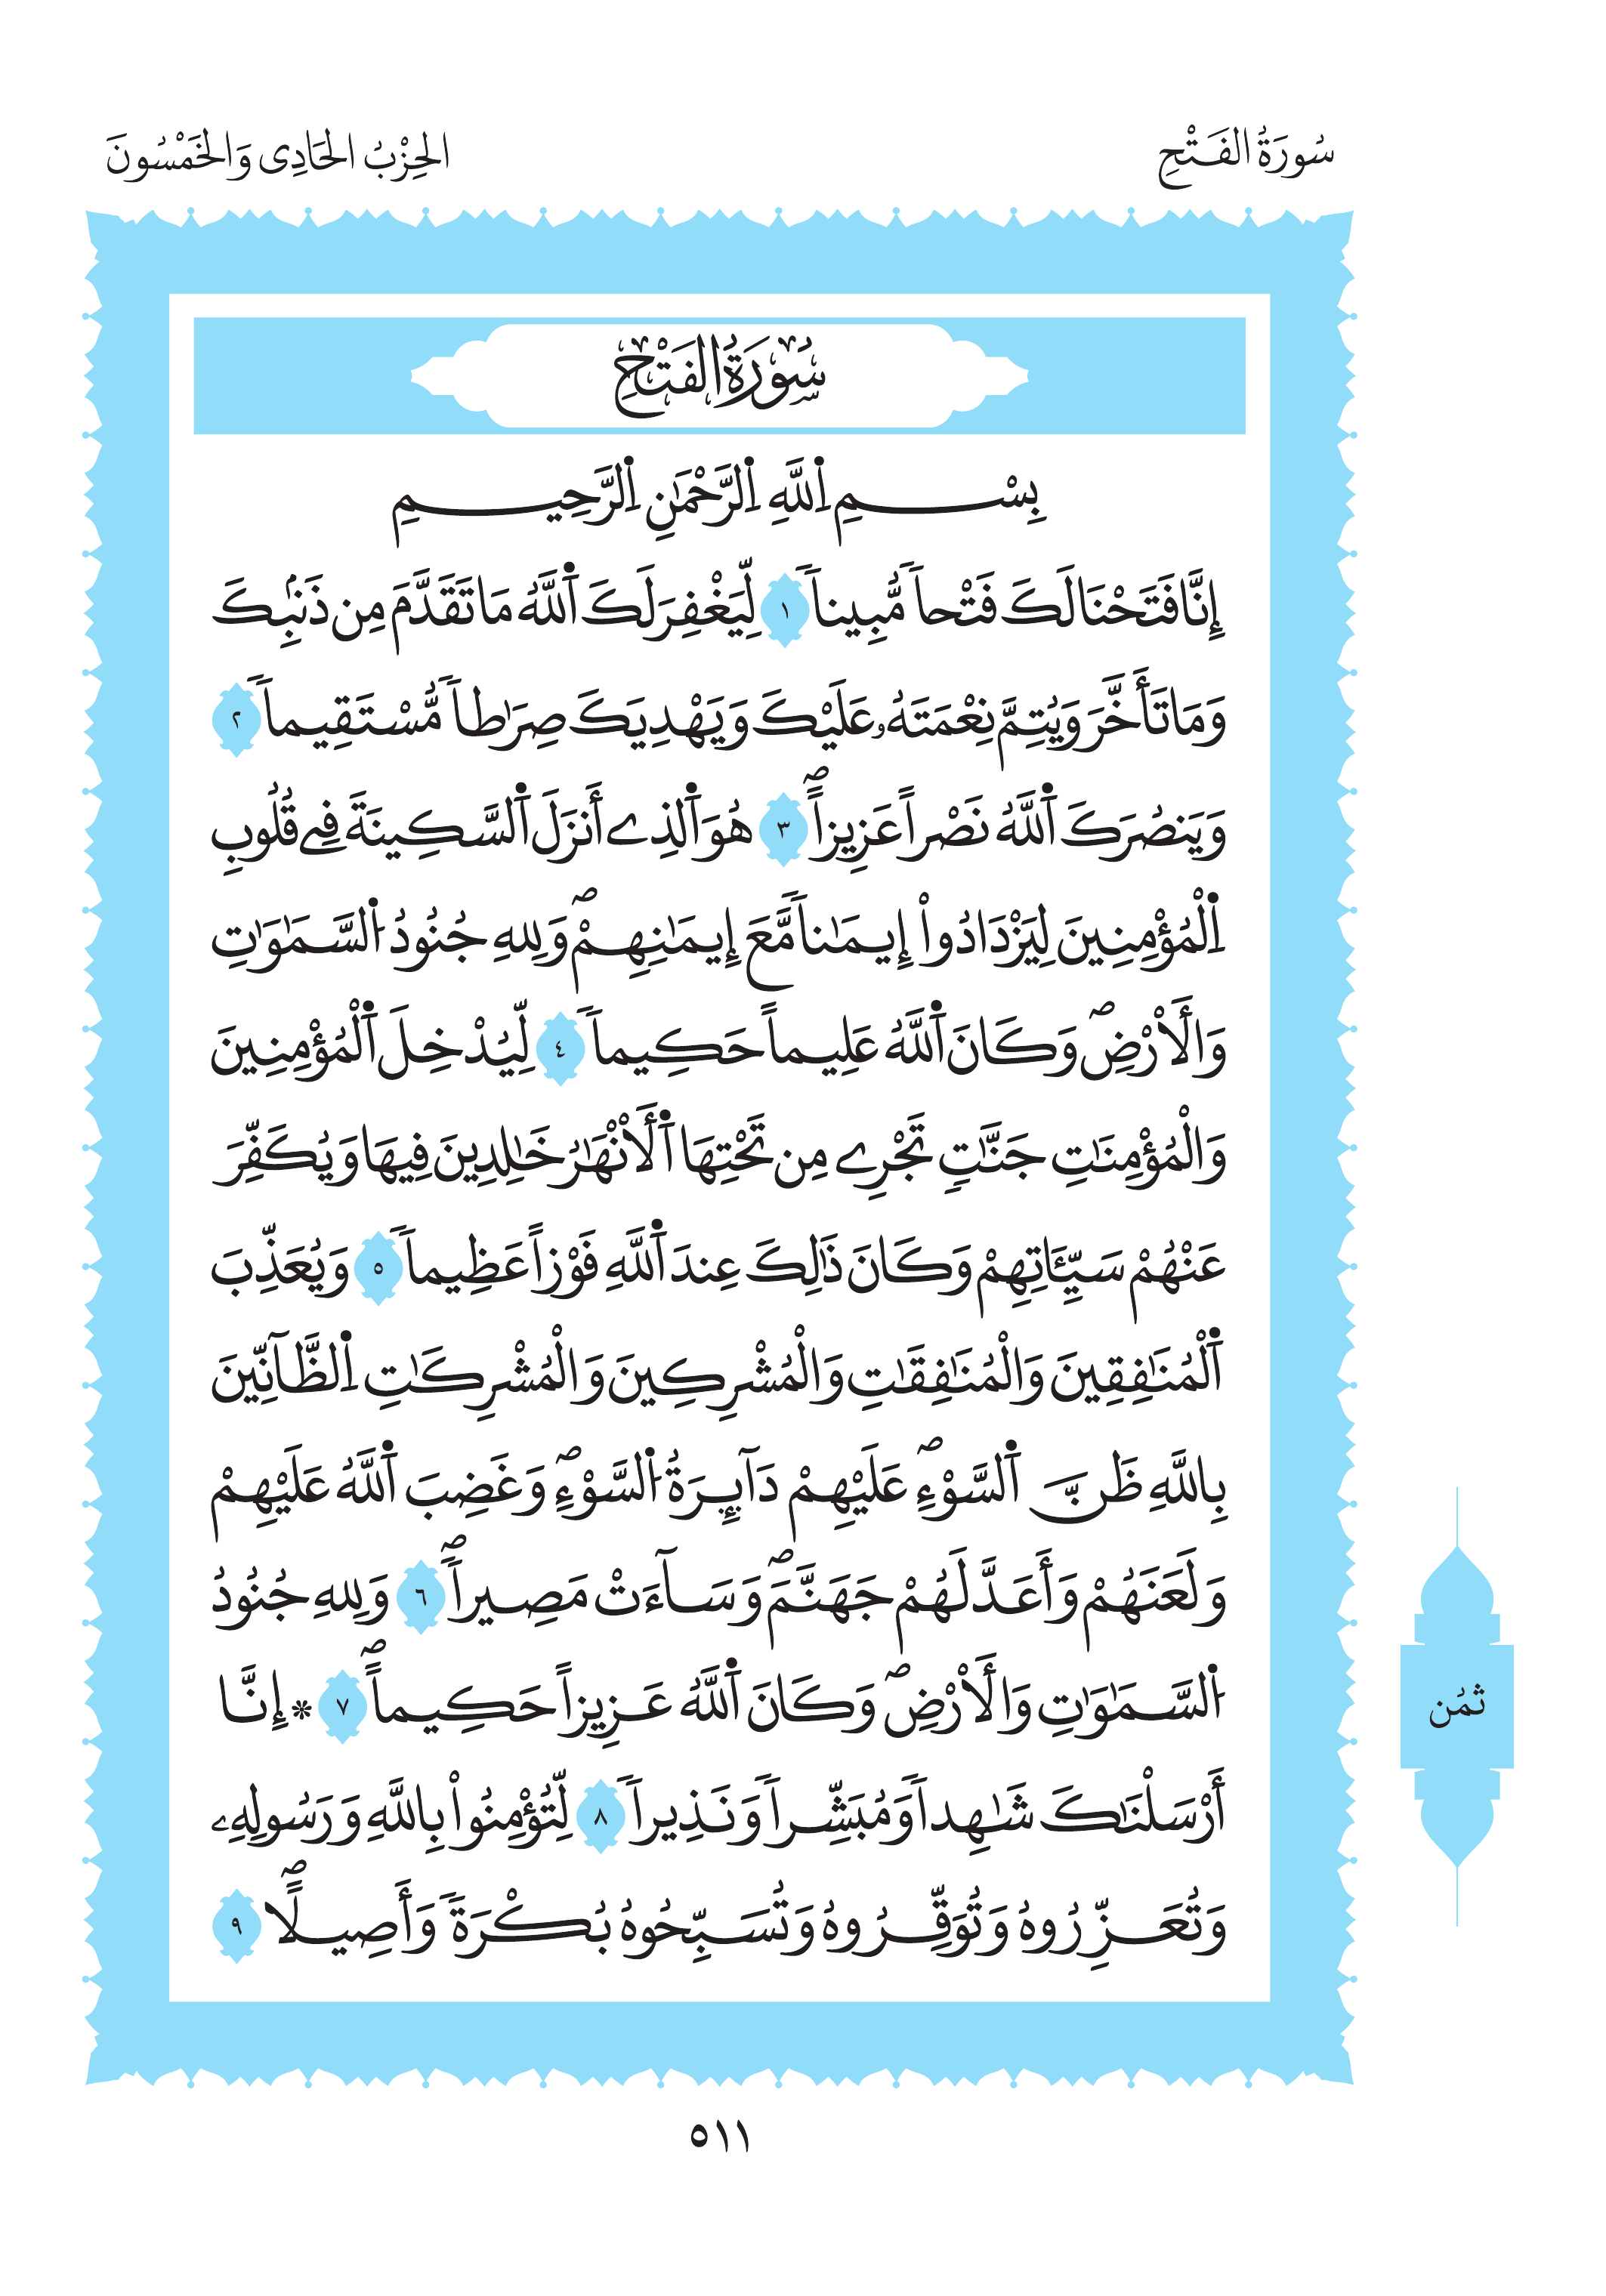 سُورَةُ الفَتْحِ
الحِزْبُ الحَادِى وَالخَمْسُونَ
سُورَةُ الْفَتْحِ
بِسْمِ اِ۬للَّهِ اِ۬لرَّحْمَٰنِ اِ۬لرَّحِيمِ
إِنَّا فَتَحْنَا لَكَ فَتْحاٗ مُّبِيناٗ ١ لِّيَغْفِرَ لَكَ اَ۬للَّهُ مَا تَقَدَّمَ مِن ذَنۢبِكَ
وَمَا تَأَخَّرَ وَيُتِمَّ نِعْمَتَهُۥ عَلَيْكَ وَيَهْدِيَكَ صِرَٰطاٗ مُّسْتَقِيماٗ ٢
وَيَنصُرَكَ اَ۬للَّهُ نَصْراً عَزِيزاًۖ ٣ هُوَ اَ۬لذِےٓ أَنزَلَ اَ۬لسَّكِينَةَ فِے قُلُوبِ
اِ۬لْمُؤْمِنِينَ لِيَزْدَادُواْ إِيمَٰناٗ مَّعَ إِيمَٰنِهِمْۖ وَلِلهِ جُنُودُ اُ۬لسَّمَٰوَٰتِ
وَالَارْضِۖ وَكَانَ اَ۬للَّهُ عَلِيماً حَكِيماٗ ٤ لِّيُدْخِلَ اَ۬لْمُؤْمِنِينَ
وَالْمُؤْمِنَٰتِ جَنَّٰتٖ تَجْرِے مِن تَحْتِهَا اَ۬لَانْهَٰرُ خَٰلِدِينَ فِيهَا وَيُكَفِّرَ
عَنْهُمْ سَيِّـَٔاتِهِمْ وَكَانَ ذَٰلِكَ عِندَ اَ۬للَّهِ فَوْزاً عَظِيماٗ ٥ وَيُعَذِّبَ
اَ۬لْمُنَٰفِقِينَ وَالْمُنَٰفِقَٰتِ وَالْمُشْرِكِينَ وَالْمُشْرِكَٰتِ اِ۬لظَّآنِّينَ
بِاللَّهِ ظَنَّ اَ۬لسَّوْءِۖ عَلَيْهِمْ دَآئِرَةُ اُ۬لسَّوْءِۖ وَغَضِبَ اَ۬للَّهُ عَلَيْهِمْ
وَلَعَنَهُمْ وَأَعَدَّ لَهُمْ جَهَنَّمَۖ وَسَآءَتْ مَصِيراٗۖ ٦ وَلِلهِ جُنُودُ
اُ۬لسَّمَٰوَٰتِ وَالَارْضِۖ وَكَانَ اَ۬للَّهُ عَزِيزاً حَكِيماًۖ ٧ * إِنَّا
أَرْسَلْنَٰكَ شَٰهِداٗ وَمُبَشِّراٗ وَنَذِيراٗ ٨ لِّتُؤْمِنُواْ بِاللَّهِ وَرَسُولِهِۦ
وَتُعَزِّرُوهُ وَتُوَقِّرُوهُ وَتُسَبِّحُوهُ بُكْرَةٗ وَأَصِيلاًۖ ٩
ثُمُن
٥١١